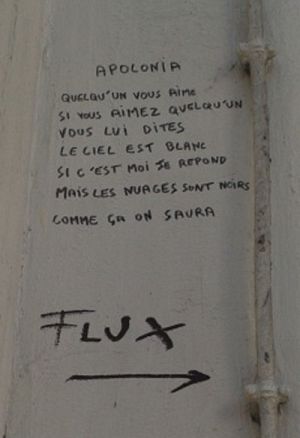 APOLONIA
QUELQU'UN VOUS AIME
SI VOUS AIMEZ QUELQU'UN
VOUS LUI DITES
LE CIEL EST BLANC
SI C'EST MOI JE REPOND
MAIS LES NUAGES SONT NOIRS
COMME ÇA ON SAURA
FLUX